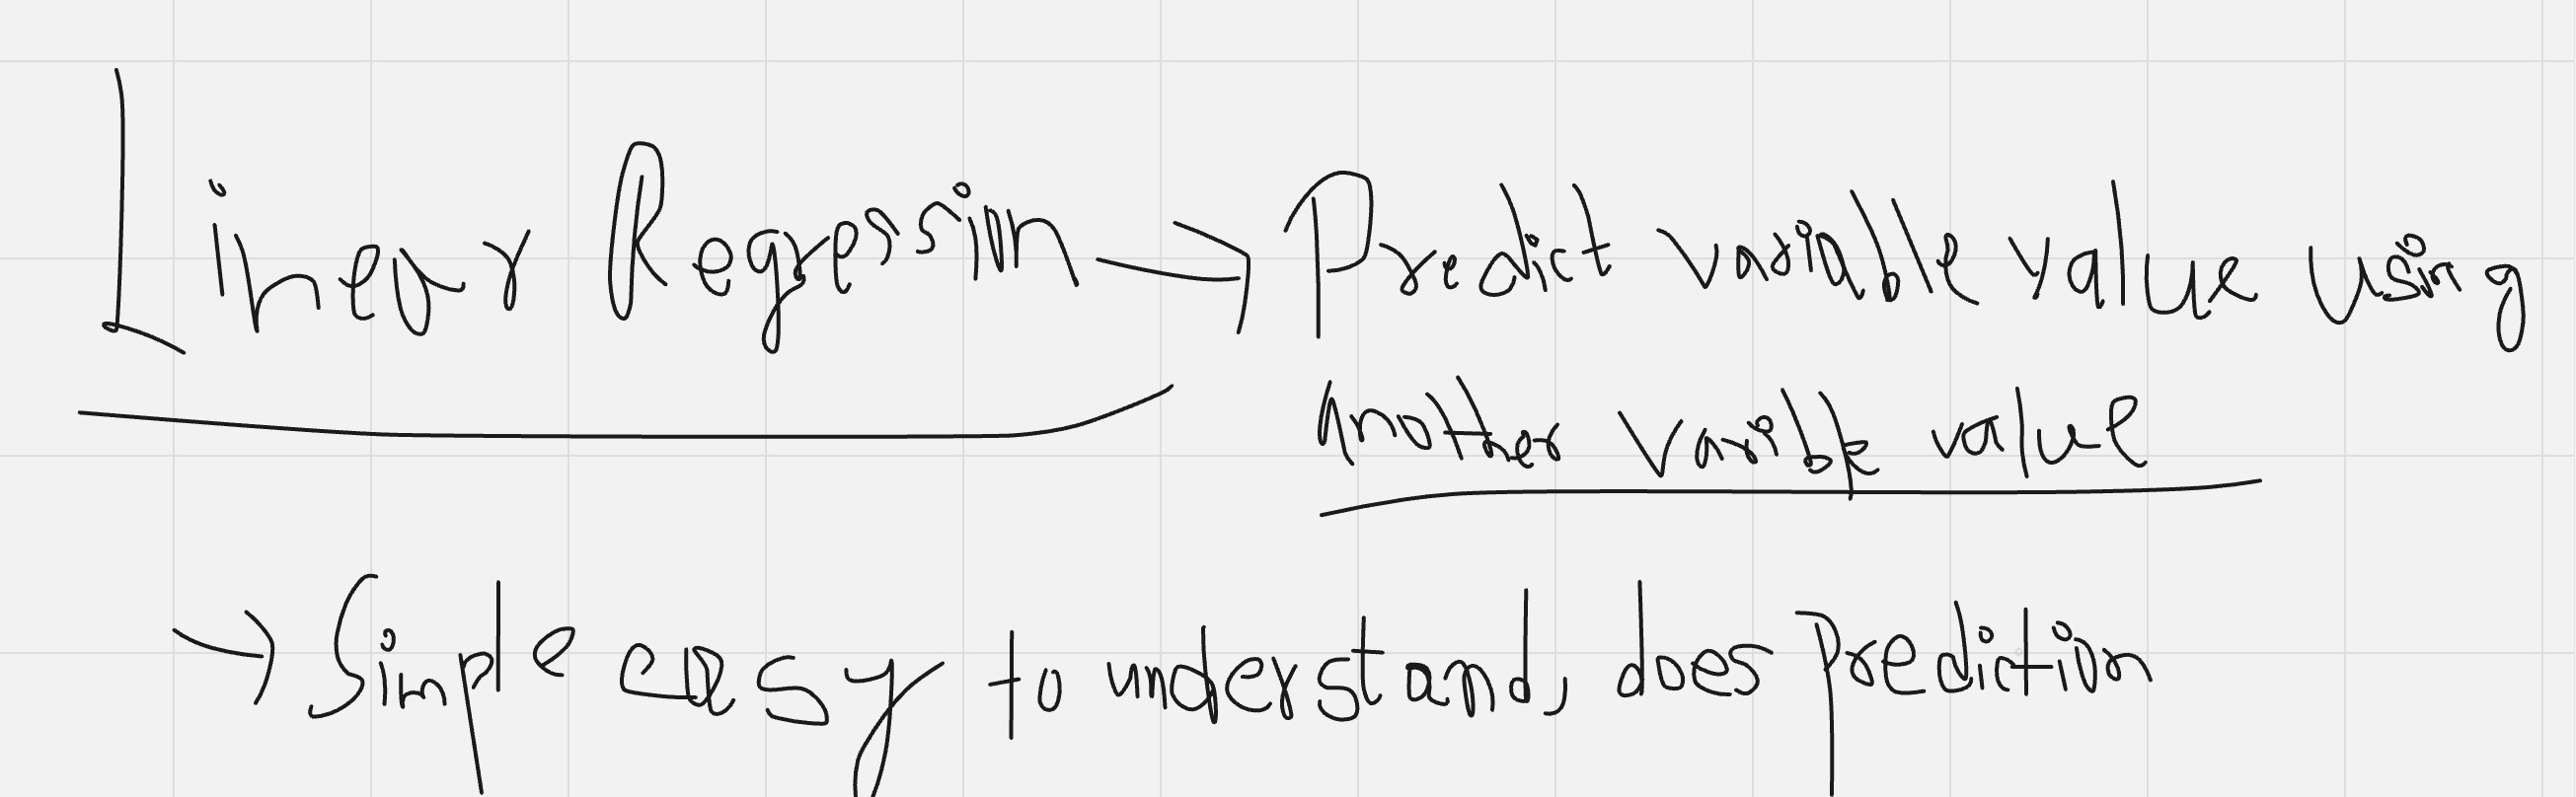 Linear Regression → Predict variable value using
another varible value
→ Simple easy to understand, does prediction